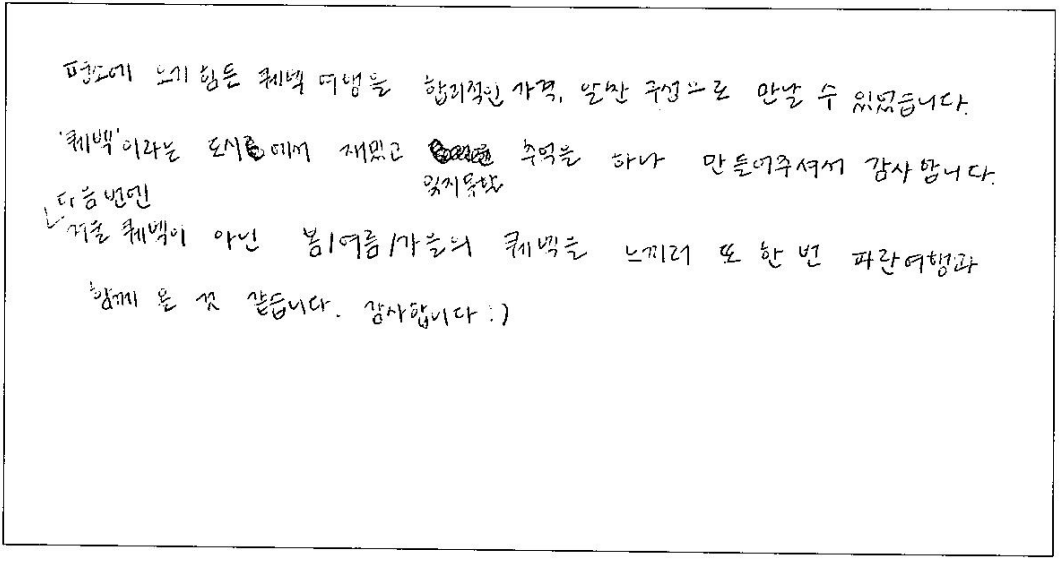 평소에 오기 힘든 퀘벡 여행을 합리적인 가격, 알찬 구성으로 만날 수 있었습니다.
'퀘벡'이라는 도시에서 재밌고 잊지못할 추억을 하나 만들어주셔서 감사합니다.
다음번엔
겨울 퀘벡이 아닌 봄/여름/가을의 퀘벡을 느끼러 또 한 번 파란여행과
함께 올 것 같습니다. 감사합니다 :)